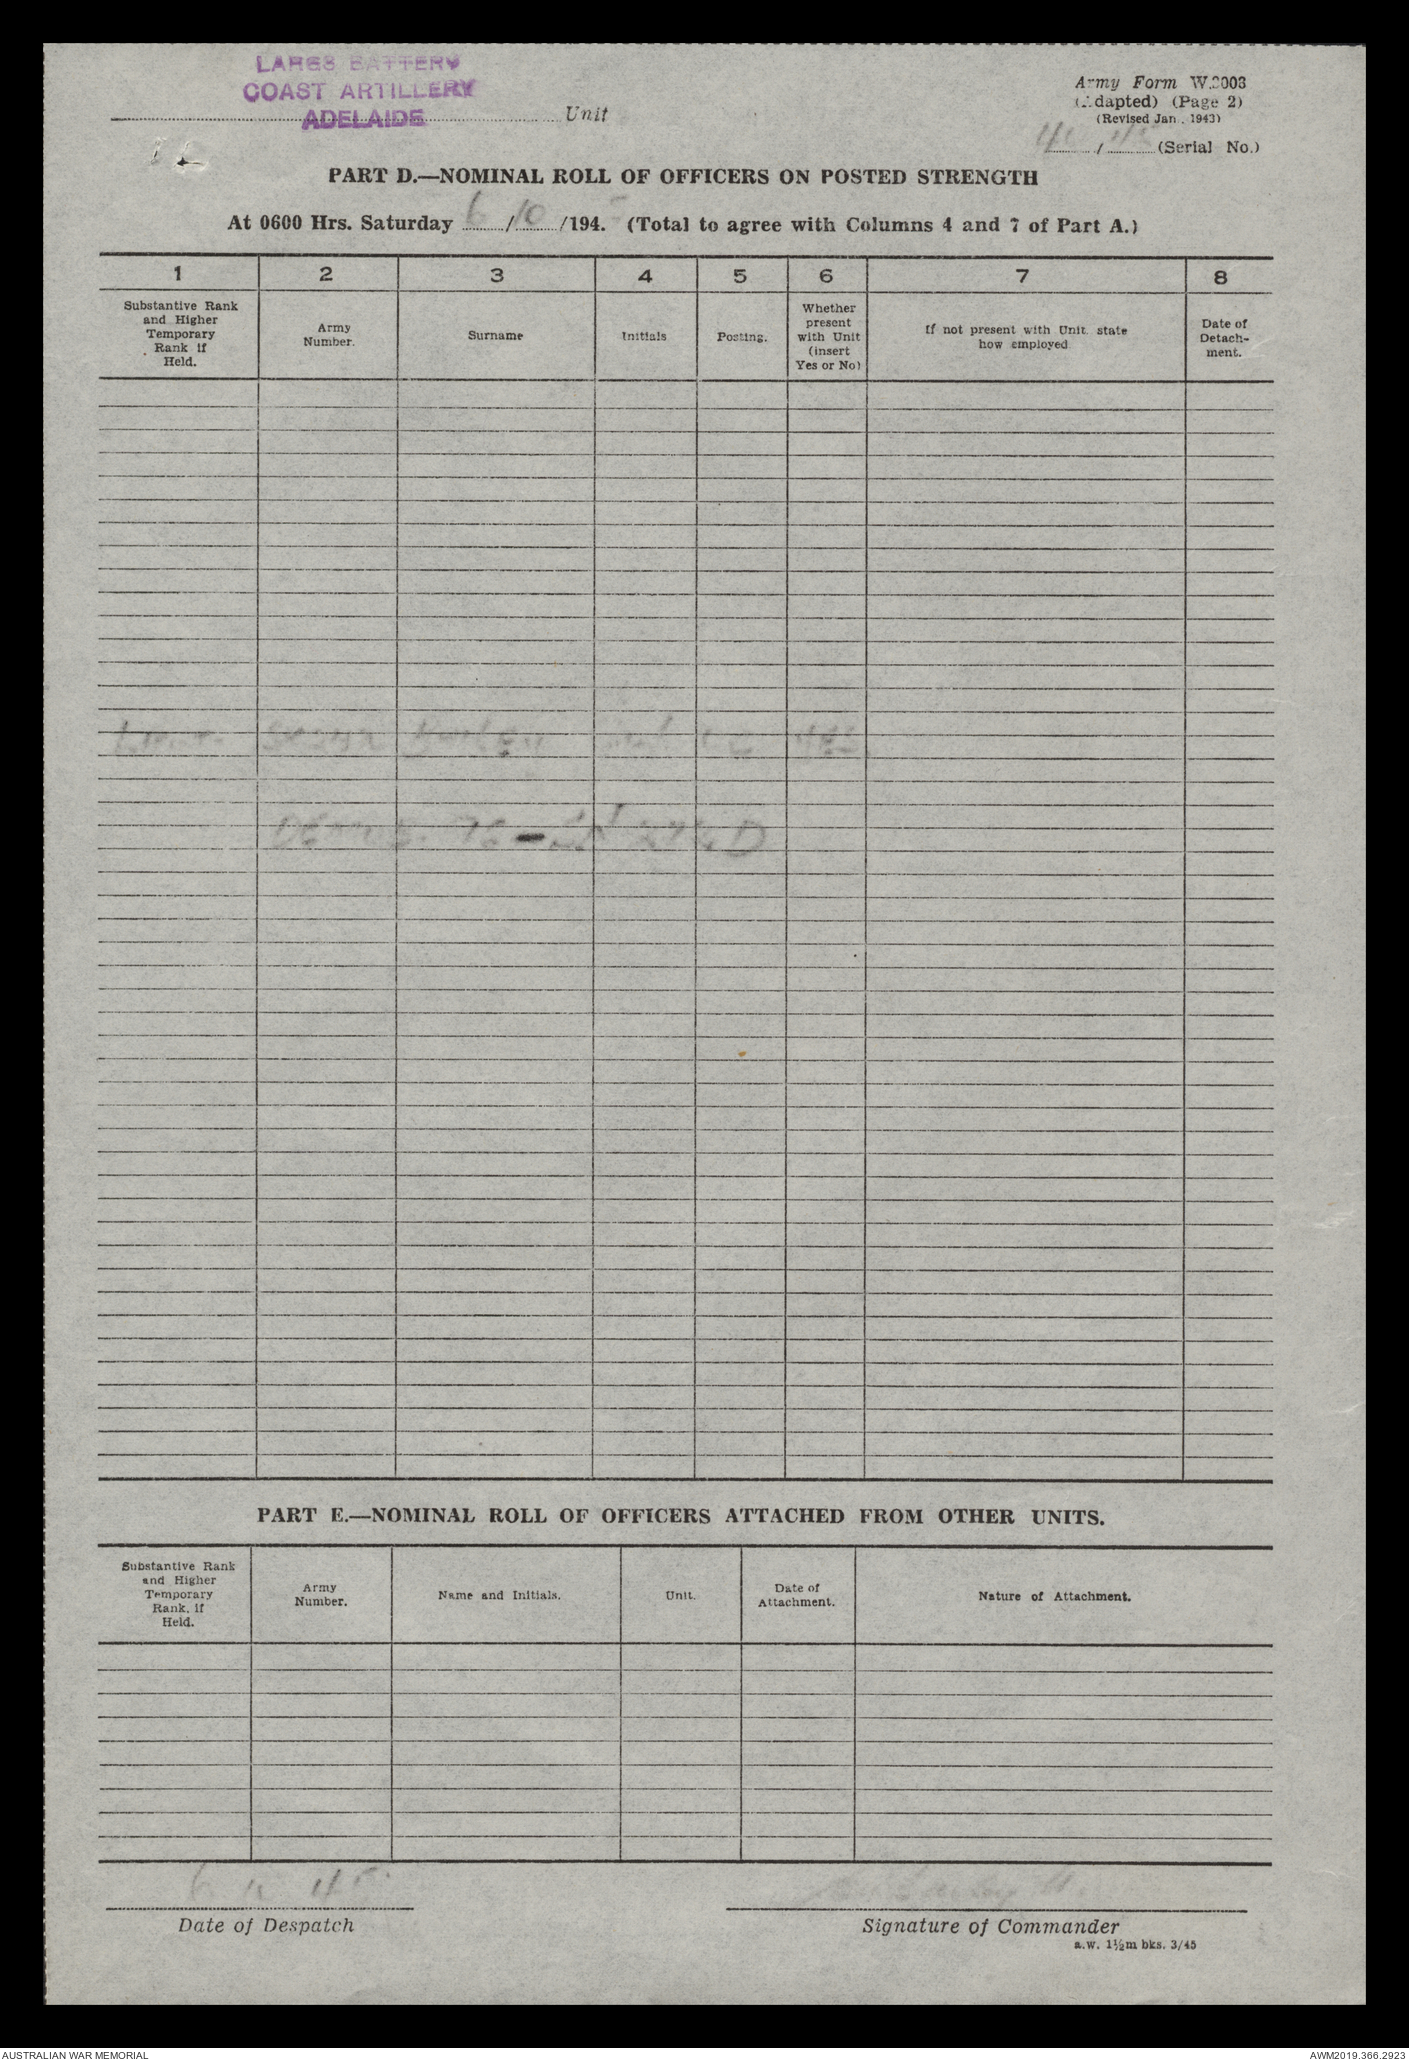 LARGS BATTERY
COAST ARTILLERY
ADELAIDE
Unit
Army Form W.3008
(Adapted) (Page 2)
(Revised Jan., 1943)
/ 45 (Serial No.)
PART D.—NOMINAL ROLL OF OFFICERS ON POSTED STRENGTH
At 0600 Hrs. Saturday 6/10/194. (Total to agree with Columns 4 and 7 of Part A.)
1 2 3 4 5 6 7 8
Substantive Rank and Higher Temporary Rank if Held.
Army Number.
Surname
Initials
Posting.
Whether present with Unit (insert Yes or No)
If not present with Unit, state how employed
Date of Detach-ment.
PART E.—NOMINAL ROLL OF OFFICERS ATTACHED FROM OTHER UNITS.
Substantive Rank and Higher Temporary Rank, if Held.
Army Number.
Name and Initials.
Unit.
Date of Attachment.
Nature of Attachment.
6 45
Date of Despatch
Signature of Commander
a.w. 1½m bks. 3/45
AUSTRALIAN WAR MEMORIAL
AWM2019.366.2923